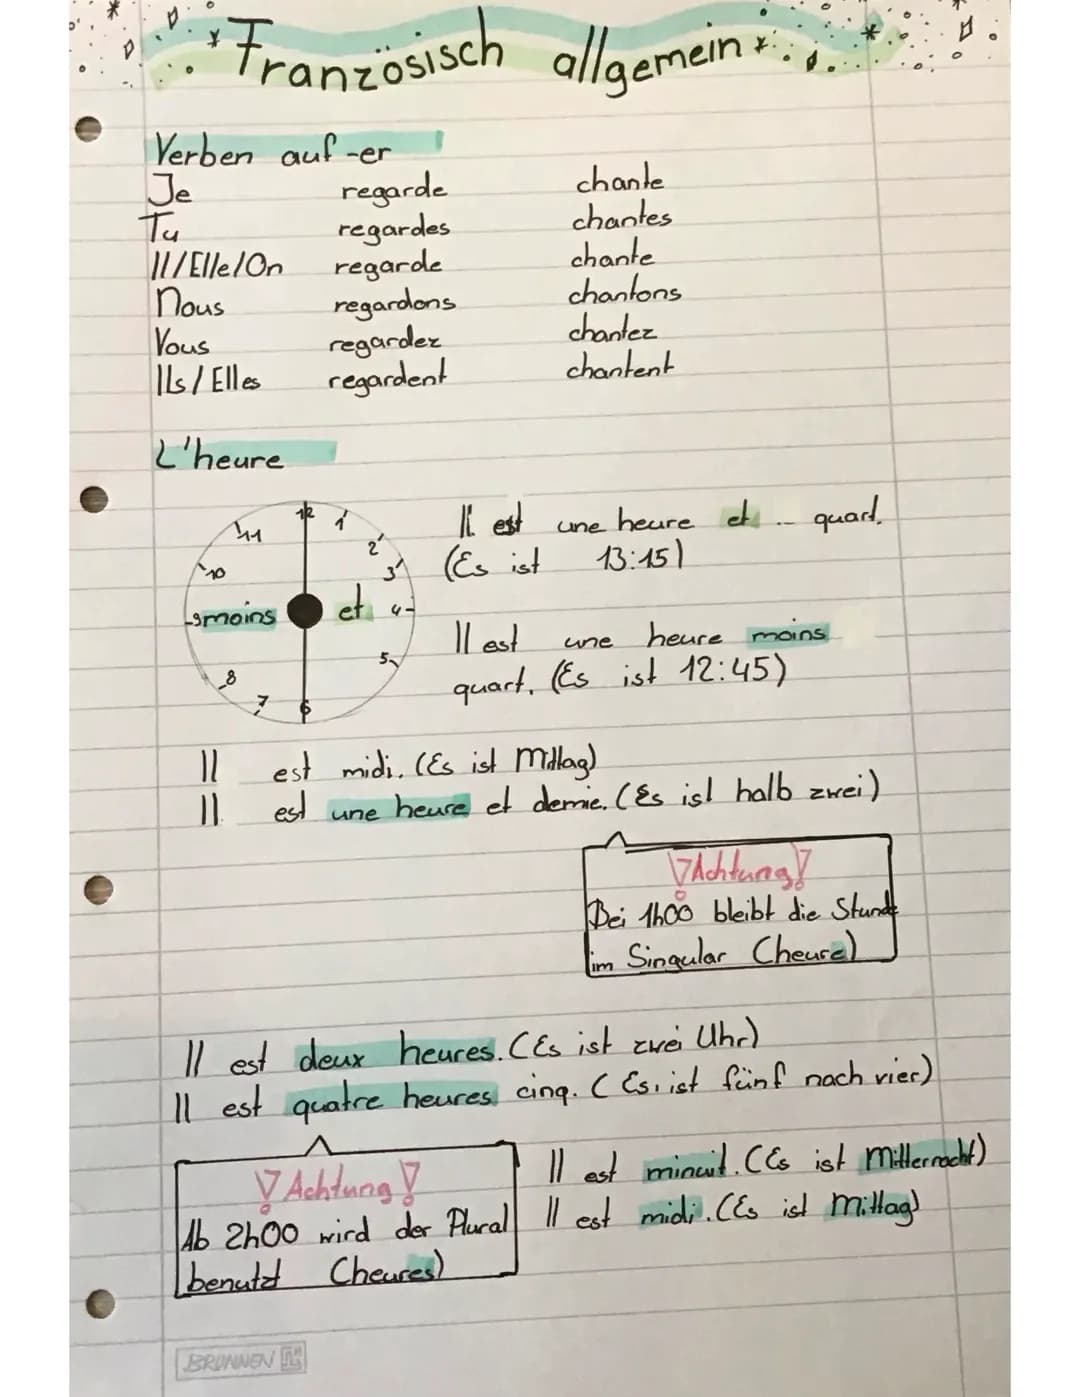 Französisch allgemein
Verben auf -er
Je regarde chante
Tu regardes chantes
Il/Elle/On regarde chante
Nous regardons chantons
Vous regardez chantez
Ils/Elles regardent chantent
L'heure
12
11 1
10 2
3
9 moins et 4
8 5
7 6
Il est une heure et ... quart.
(Es ist 13:15)
Il est une heure moins
quart. (Es ist 12:45)
Il est midi. (Es ist Mittag)
Il est une heure et demie. (Es ist halb zwei)
!Achtung!
Bei 1h00 bleibt die Stunde
im Singular (heure)
Il est deux heures. (Es ist zwei Uhr)
Il est quatre heures cinq. (Es ist fünf nach vier)
!Achtung!
Ab 2h00 wird der Plural
benutzt (heures)
Il est minuit. (Es ist Mitternacht)
Il est midi. (Es ist Mittag)
BRUNNEN